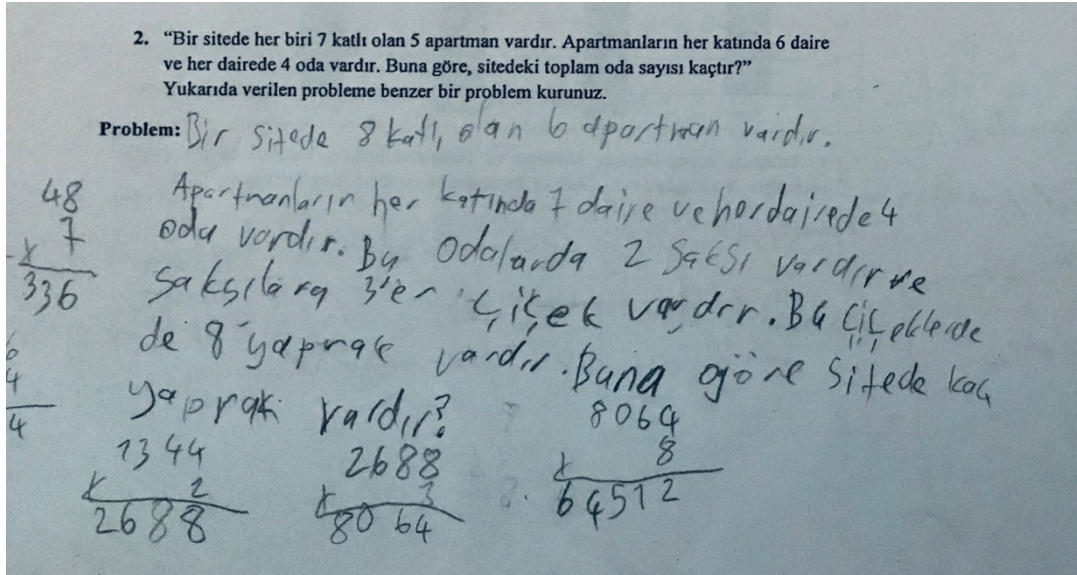 2. "Bir sitede her biri 7 katlı olan 5 apartman vardır. Apartmanların her katında 6 daire
ve her dairede 4 oda vardır. Buna göre, sitedeki toplam oda sayısı kaçtır?"
Yukarıda verilen probleme benzer bir problem kurunuz.
Problem: Bir sitede 8 katlı olan 6 apartman vardır.
Apartmanların her katında 7 daire ve her dairede 4
oda vardır. Bu odalarda 2 saksı vardır ve
saksılara 3'er çiçek vardır. Bu çiçeklerde
de 8 yaprak vardır. Buna göre sitede kaç
yaprak vardır?
48
x 7
336
6
4
4
1344
x 2
2688
2688
x 3
8064
8064
x 8
64512